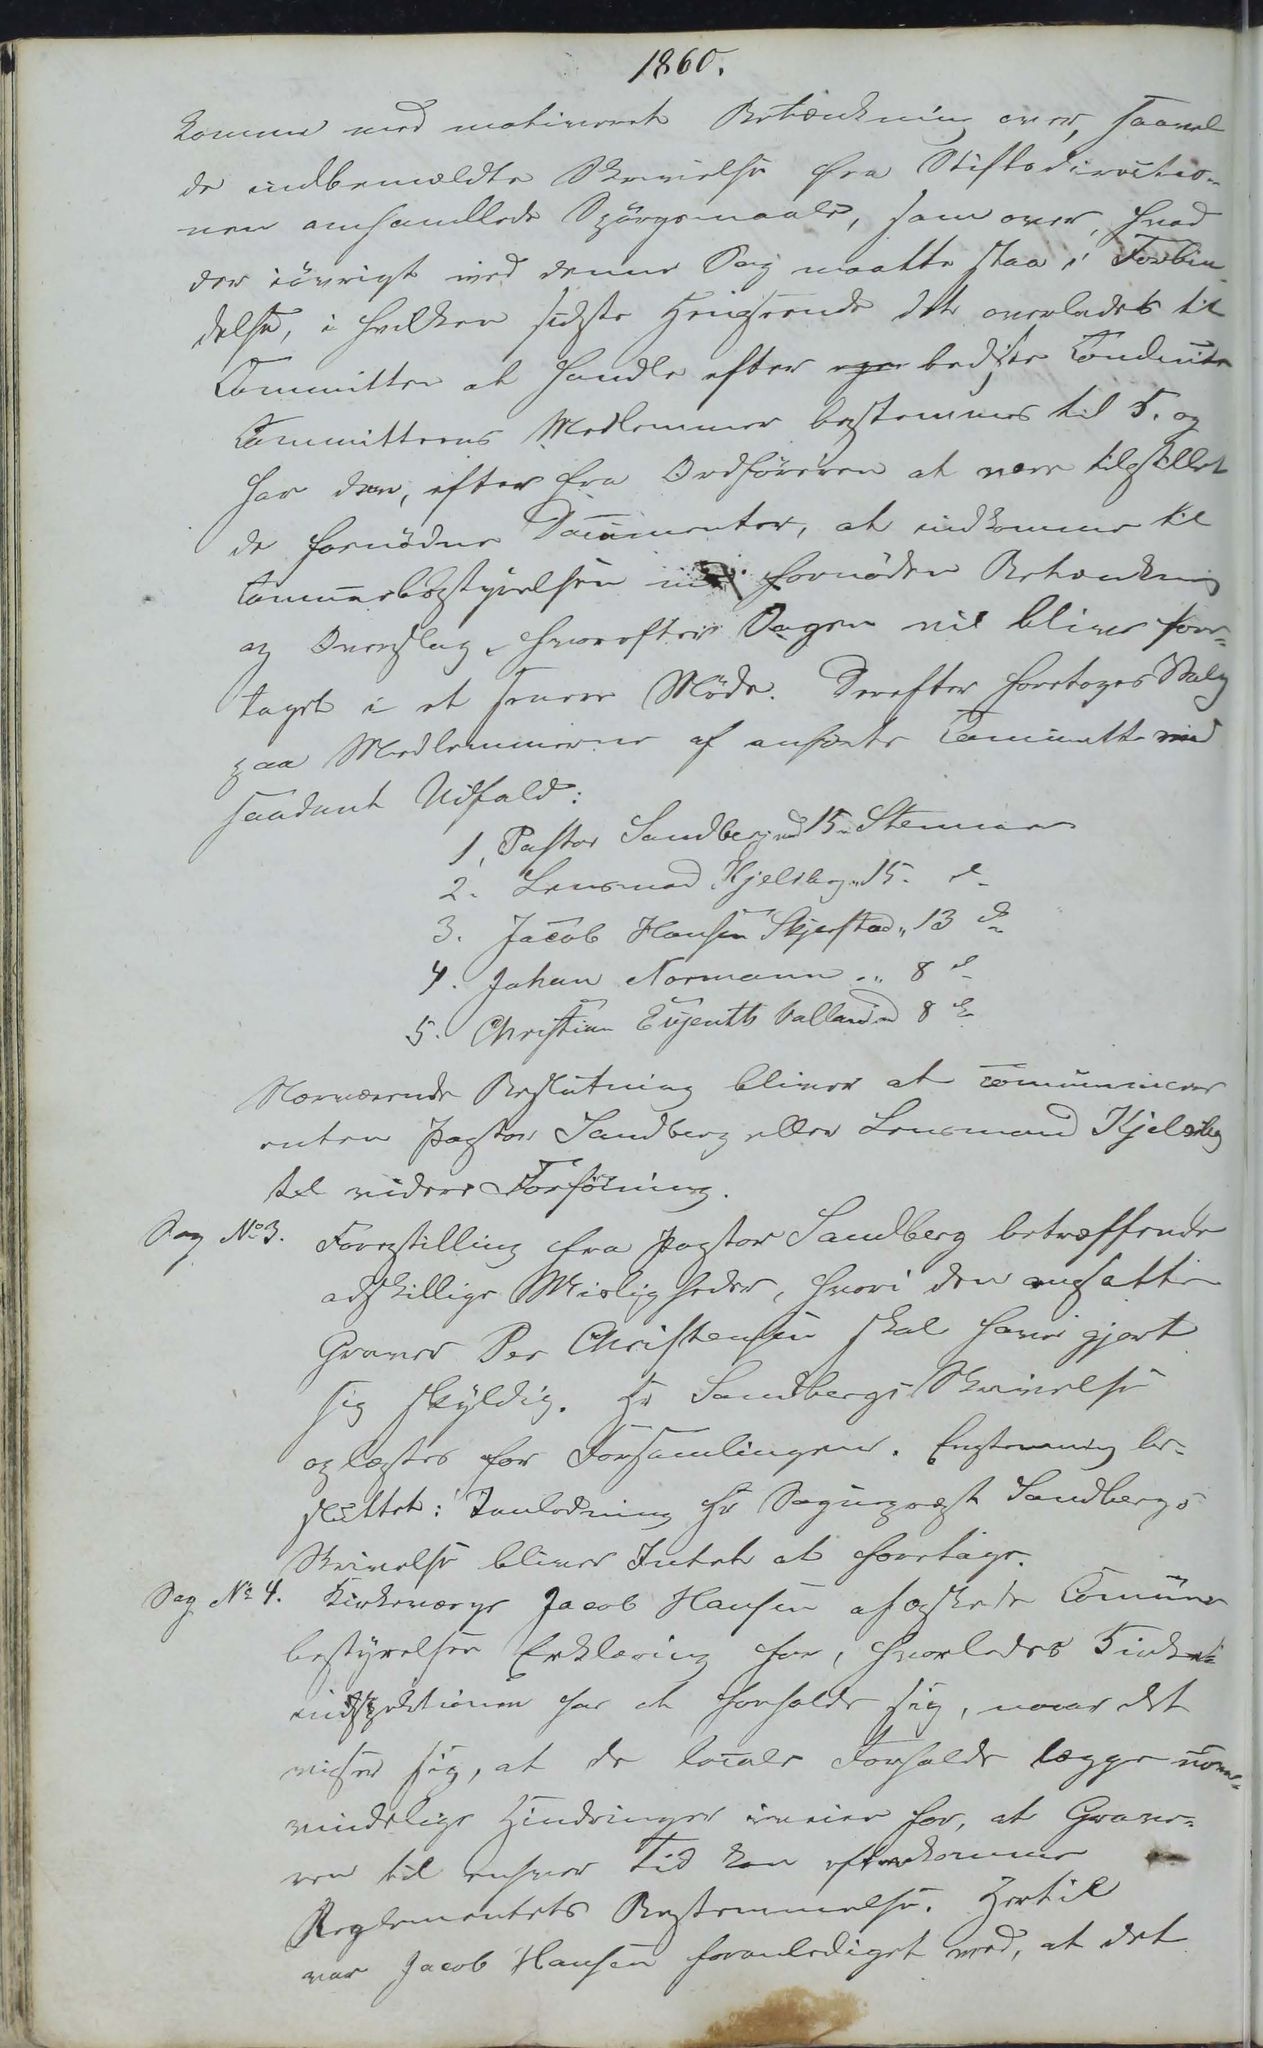 1860.
komme med motiveret Betænkning over, saavel
de indbemeldte Skrivelse fra Stiftsdirectio-
nen omhandlede Spörgsmaale, som over, hvad
der iövrigt ved denne Sag maatte staa i Forbin-
delse, i hvilken sidste Henseende det overlades til
Committen at handle efter bedste Conduite
Committeens Medlemmer bestemmes til 5. og
har den, efter fra Ordföreren at være tilstillet
de fornödne Documenter, at indkomme til
Communebestyrelsen med fornöden Betænkning
og Overslag, hvorefter Sagen vil blive fore-
taget i et senere Möde. Derefter foretoges Valg
paa Medlemmerne af ansatte Committe med
saadant Udfald:
1, Pastor Sandberg med 15 Stemmer
2. Lensmand Kjelsberg " 15. d
3. Jacob Hansen Skjerstad " 13 d
4. Johan Normann " 8 d
5. Christian Valland 8 d
Nærværende Beslutning bliver at communicere
enten Pastor Sandberg eller Lensmand Kjelsberg
til videre Forföining.
Sag No 3. Forestilling fra Pastor Sandberg betræffende
adskillige Misligheder, hvori den ansatte
Graver Per Christensen skal have gjort
sig skyldig. Hr Sandbergs Skrivelse
oplæstes for Forsamlingen. Enstemmig be-
sluttet: I Anledning Hr Sognepræst Sandbergs
Skrivelse bliver Intet at foretage.
Sag No 4. Kirkeværge Jacob Hansen afæskede Commune
bestyrelsen Erklæring for, hvorledes Kirke-
inspektionen har at forholde sig, naar det
viser sig, at de locale Forholde lægge uover-
vindelige Hindringer iveien for, at Grave-
ren til enhver Tid kan efterkomme
Reglementets Bestemmelse. Hertil
var Jacob Hansen foranlediget ved, at det